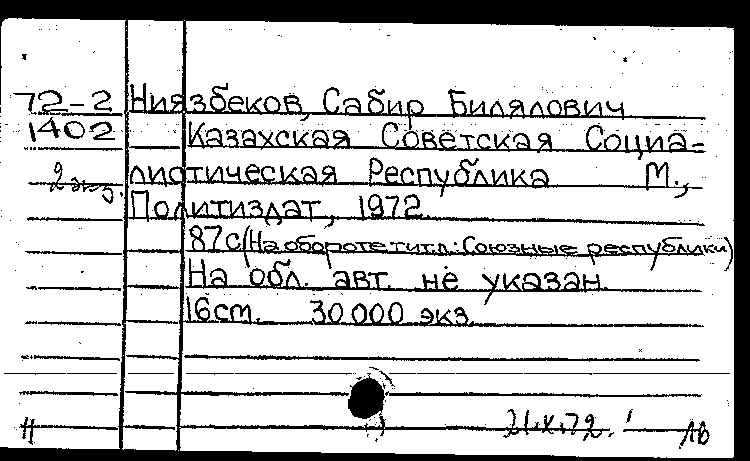 72-2 Ниязбеков, Сабир Билялович
1402 Казахская Советская Социа-
2 экз. листическая Республика М.,
Политиздат, 1972.
87с (На обороте тит.л.: Союзные республики)
На обл. авт. не указан.
16см. 30000 экз.
21.X.72.